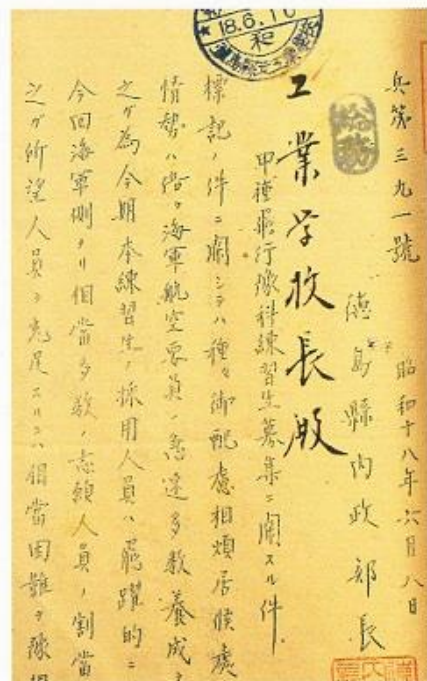 兵第三九一號
昭和十八年六月八日
徳島縣内政部長
総務
18.6.10
和
工業学校長殿
甲種飛行豫科練習生募集ニ関スル件
標記ノ件ニ関シテハ種々御配慮相煩居候處
情勢ハ海軍航空要員ノ急速多数養成ヲ
之ガ為今期本練習生ノ採用人員ハ飛躍的ニ
今回海軍側ヨリ相當多数ノ志願人員ノ割當
之ガ所望人員ヲ充足スルニハ相當困難ヲ豫想